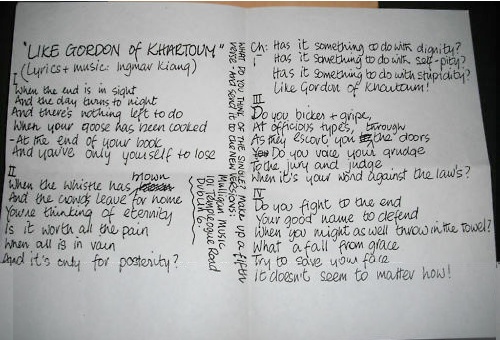 "LIKE GORDON of KHARTOUM"
(Lyrics + music: Ingmar Kiang)
I
When the end is in sight
And the day turns to night
And there's nothing left to do
When your goose has been cooked
-At the end of your book
And you've only yourself to lose
II
blown
When the Whistle has
And the crowds leave for home
You're thinking of eternity
Is it worth all the pain
When all is in vain
And it's only for posterity?
WHAT DO YOU THINK OF THE SINGLE? MAKE UP A FIFTH
VERSE - AND SEND IT TO US! NEW VERSIONS:
Mulligan Music
101 Templeogue Road
Dublin 6
Ch: Has it something to do with dignity?
Has it something to do with self-pity?
Has it something to do with stupidity?
Like Gordon of Khartoum!
III
Do you bicker + gripe,
At officious types,
through
As they escort you the doors
Do you voice your grudge
To the jury and judge
When it's your word against the laws?
IV
Do you fight to the end
Your good name to defend
When you might as well throw in the towel?
What a fall from grace
Try to save your face
It doesn't seem to matter how!